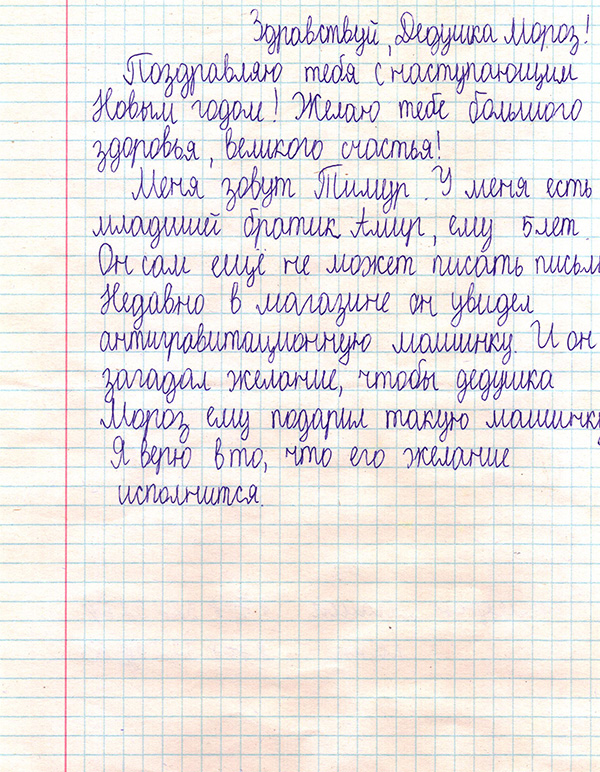 Здравствуй, Дедушка Мороз!
Поздравляю тебя с наступающим
Новым годом! Желаю тебе большого
здоровья, великого счастья!
Меня зовут Тимур. У меня есть
младший братик Амир, ему 5 лет.
Он сам ещё не может писать письм
Недавно в магазине он увидел
антигравитационную машинку. И он
загадал желание, чтобы дедушка
Мороз ему подарил такую машинку
Я верю в то, что его желание
исполнится.